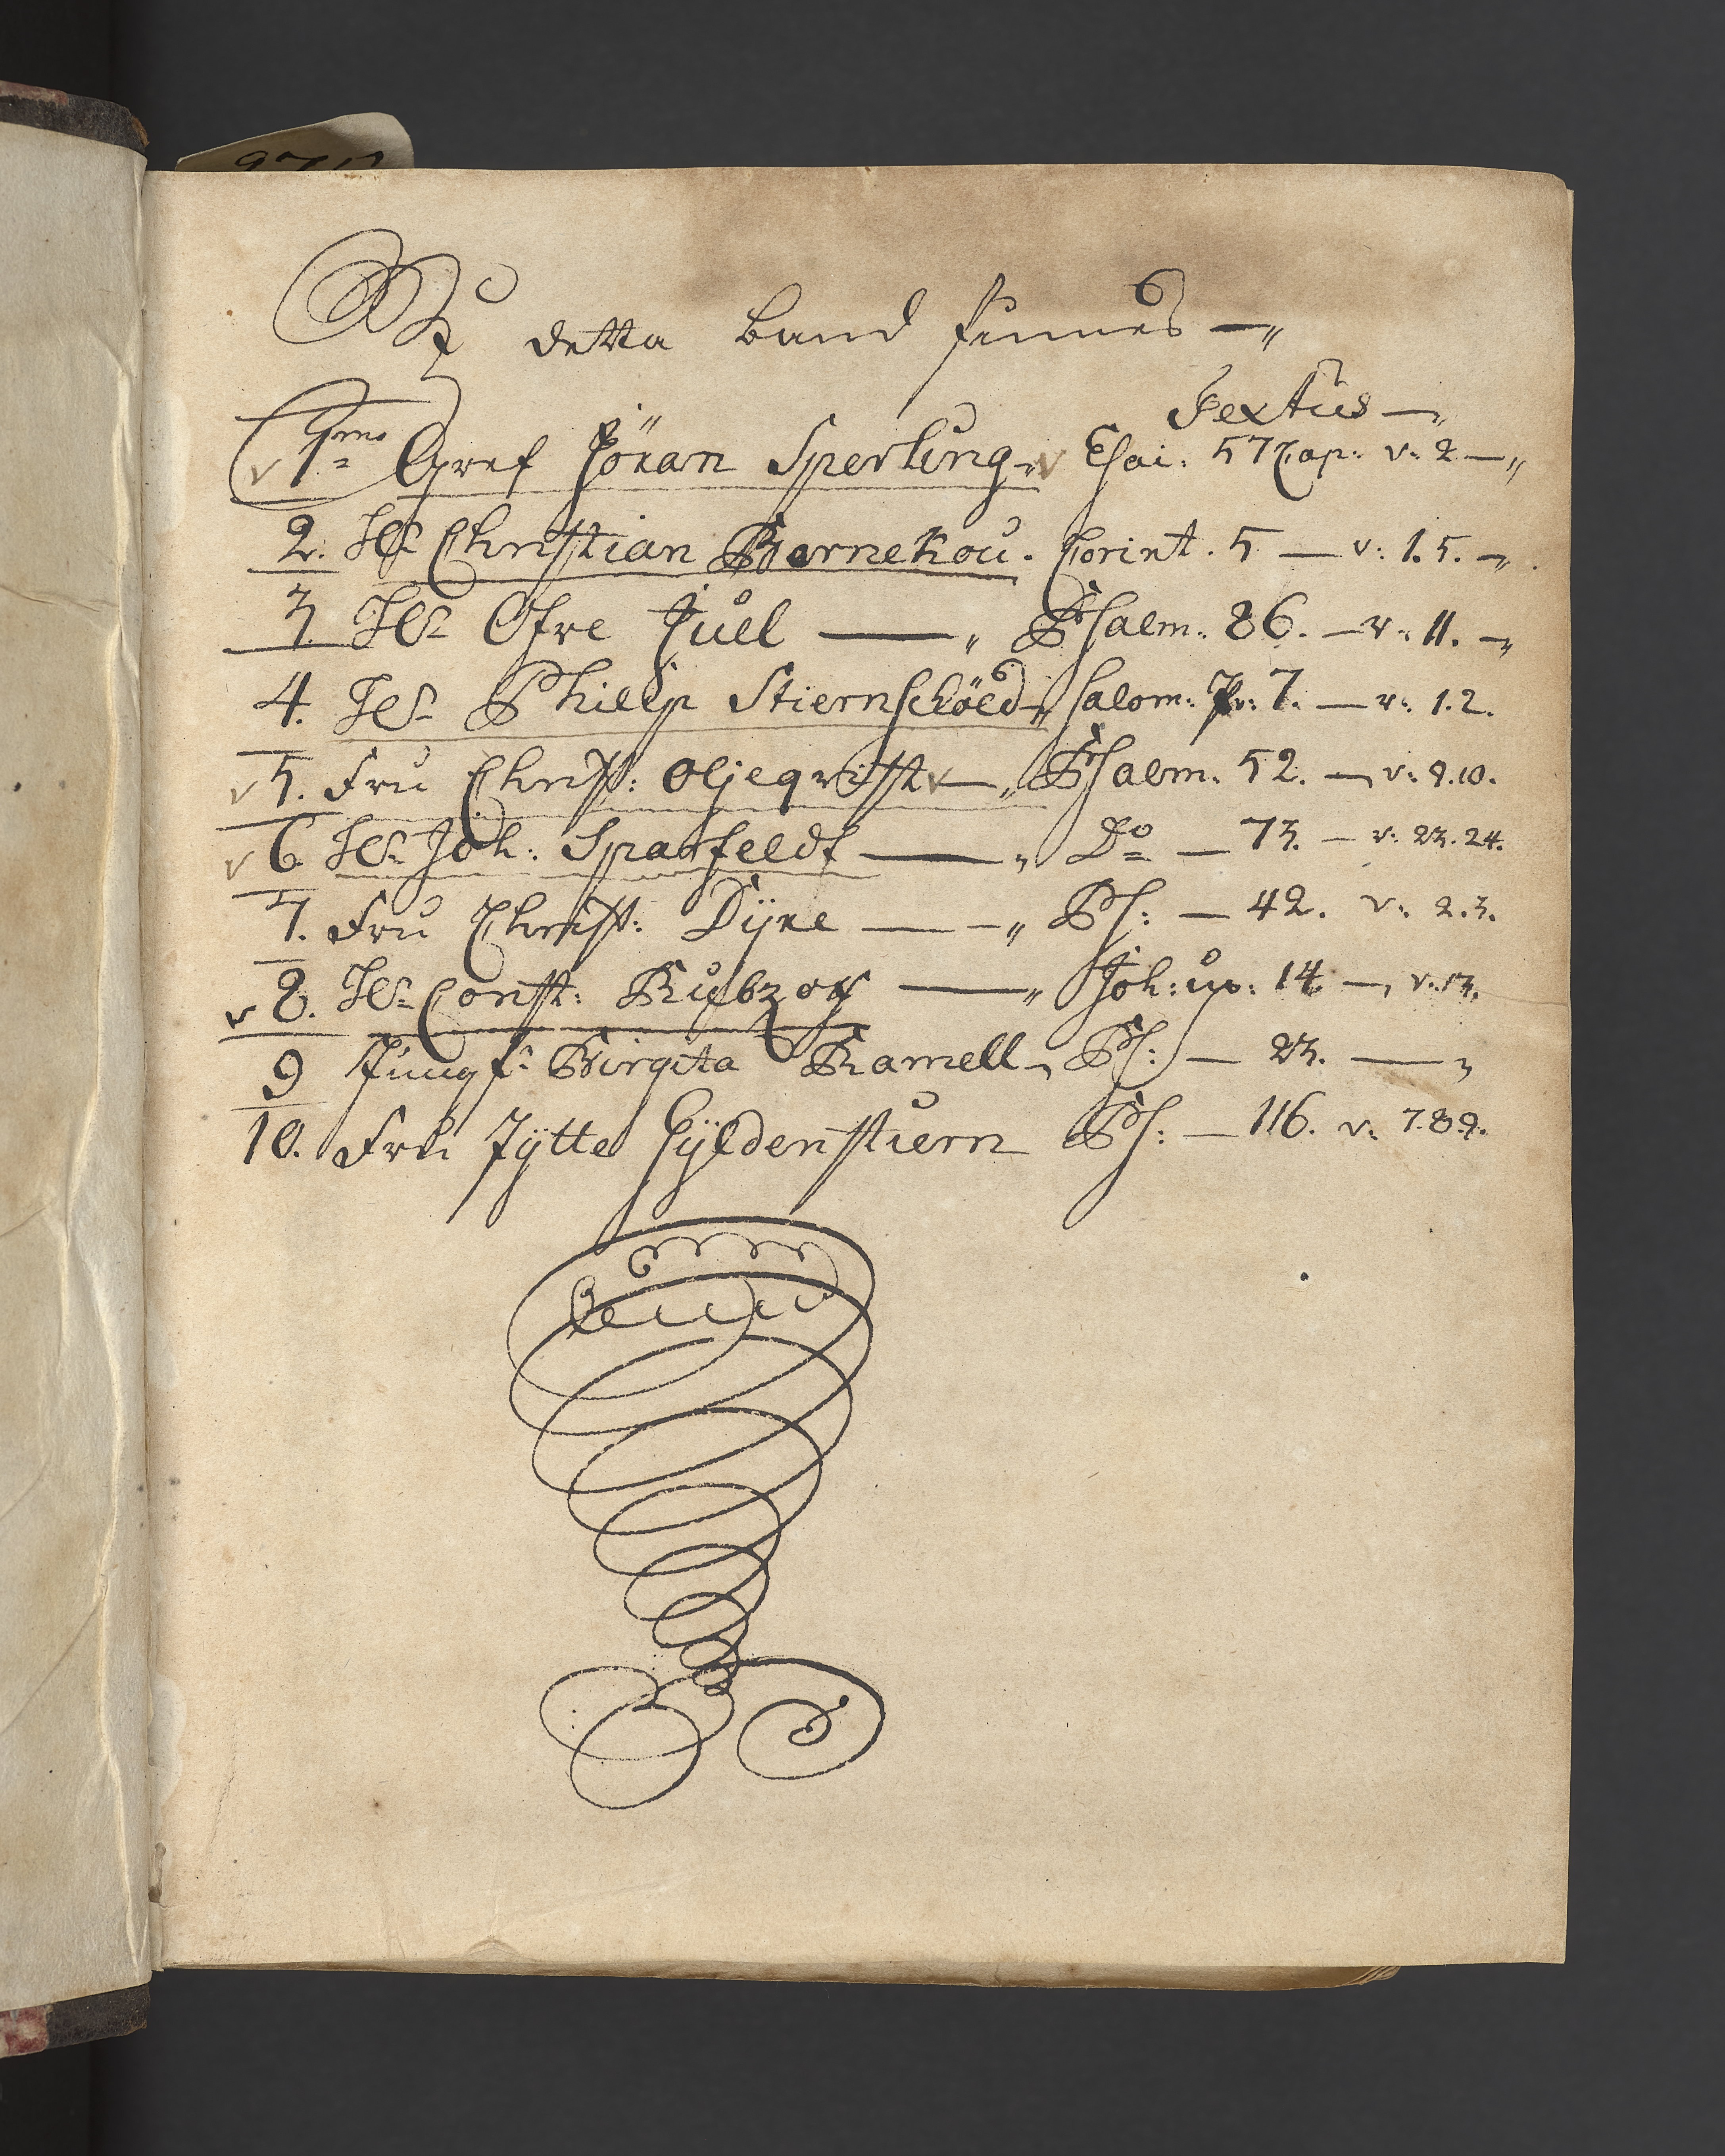 Uti detta band finnes —„
Textus —„
1mo Gref Jöran Sperling „ Esai: 57 Cap: v: 2 —„
2. Hr Christian Barnekou. Corint. 5 — v: 1.5. —„
3. Hr Ofve Juel —„ Psalm: 86. — v: 11. —„
4. Hr Philip Stiernschöld —„ Salom: Pr: 7. — v: 1.2.
5. Fru Christ: Oljeqvist —„ Psalm. 52. —, v: 9.10.
6. Hr Joh: Sparfeldt —„ Do — 73. — v: 23.24.
7. Fru Christ: Dÿre — —„ Ps: — 42. v: 2.3.
8. Hr Const: —„ Joh: 14. —, v. 13.
9 Jungf: Birgita Ramell — Ps: — 23. —„
10. Fru Jÿtte Gÿldenstiern Ps: — 116. v: 7.8.9.